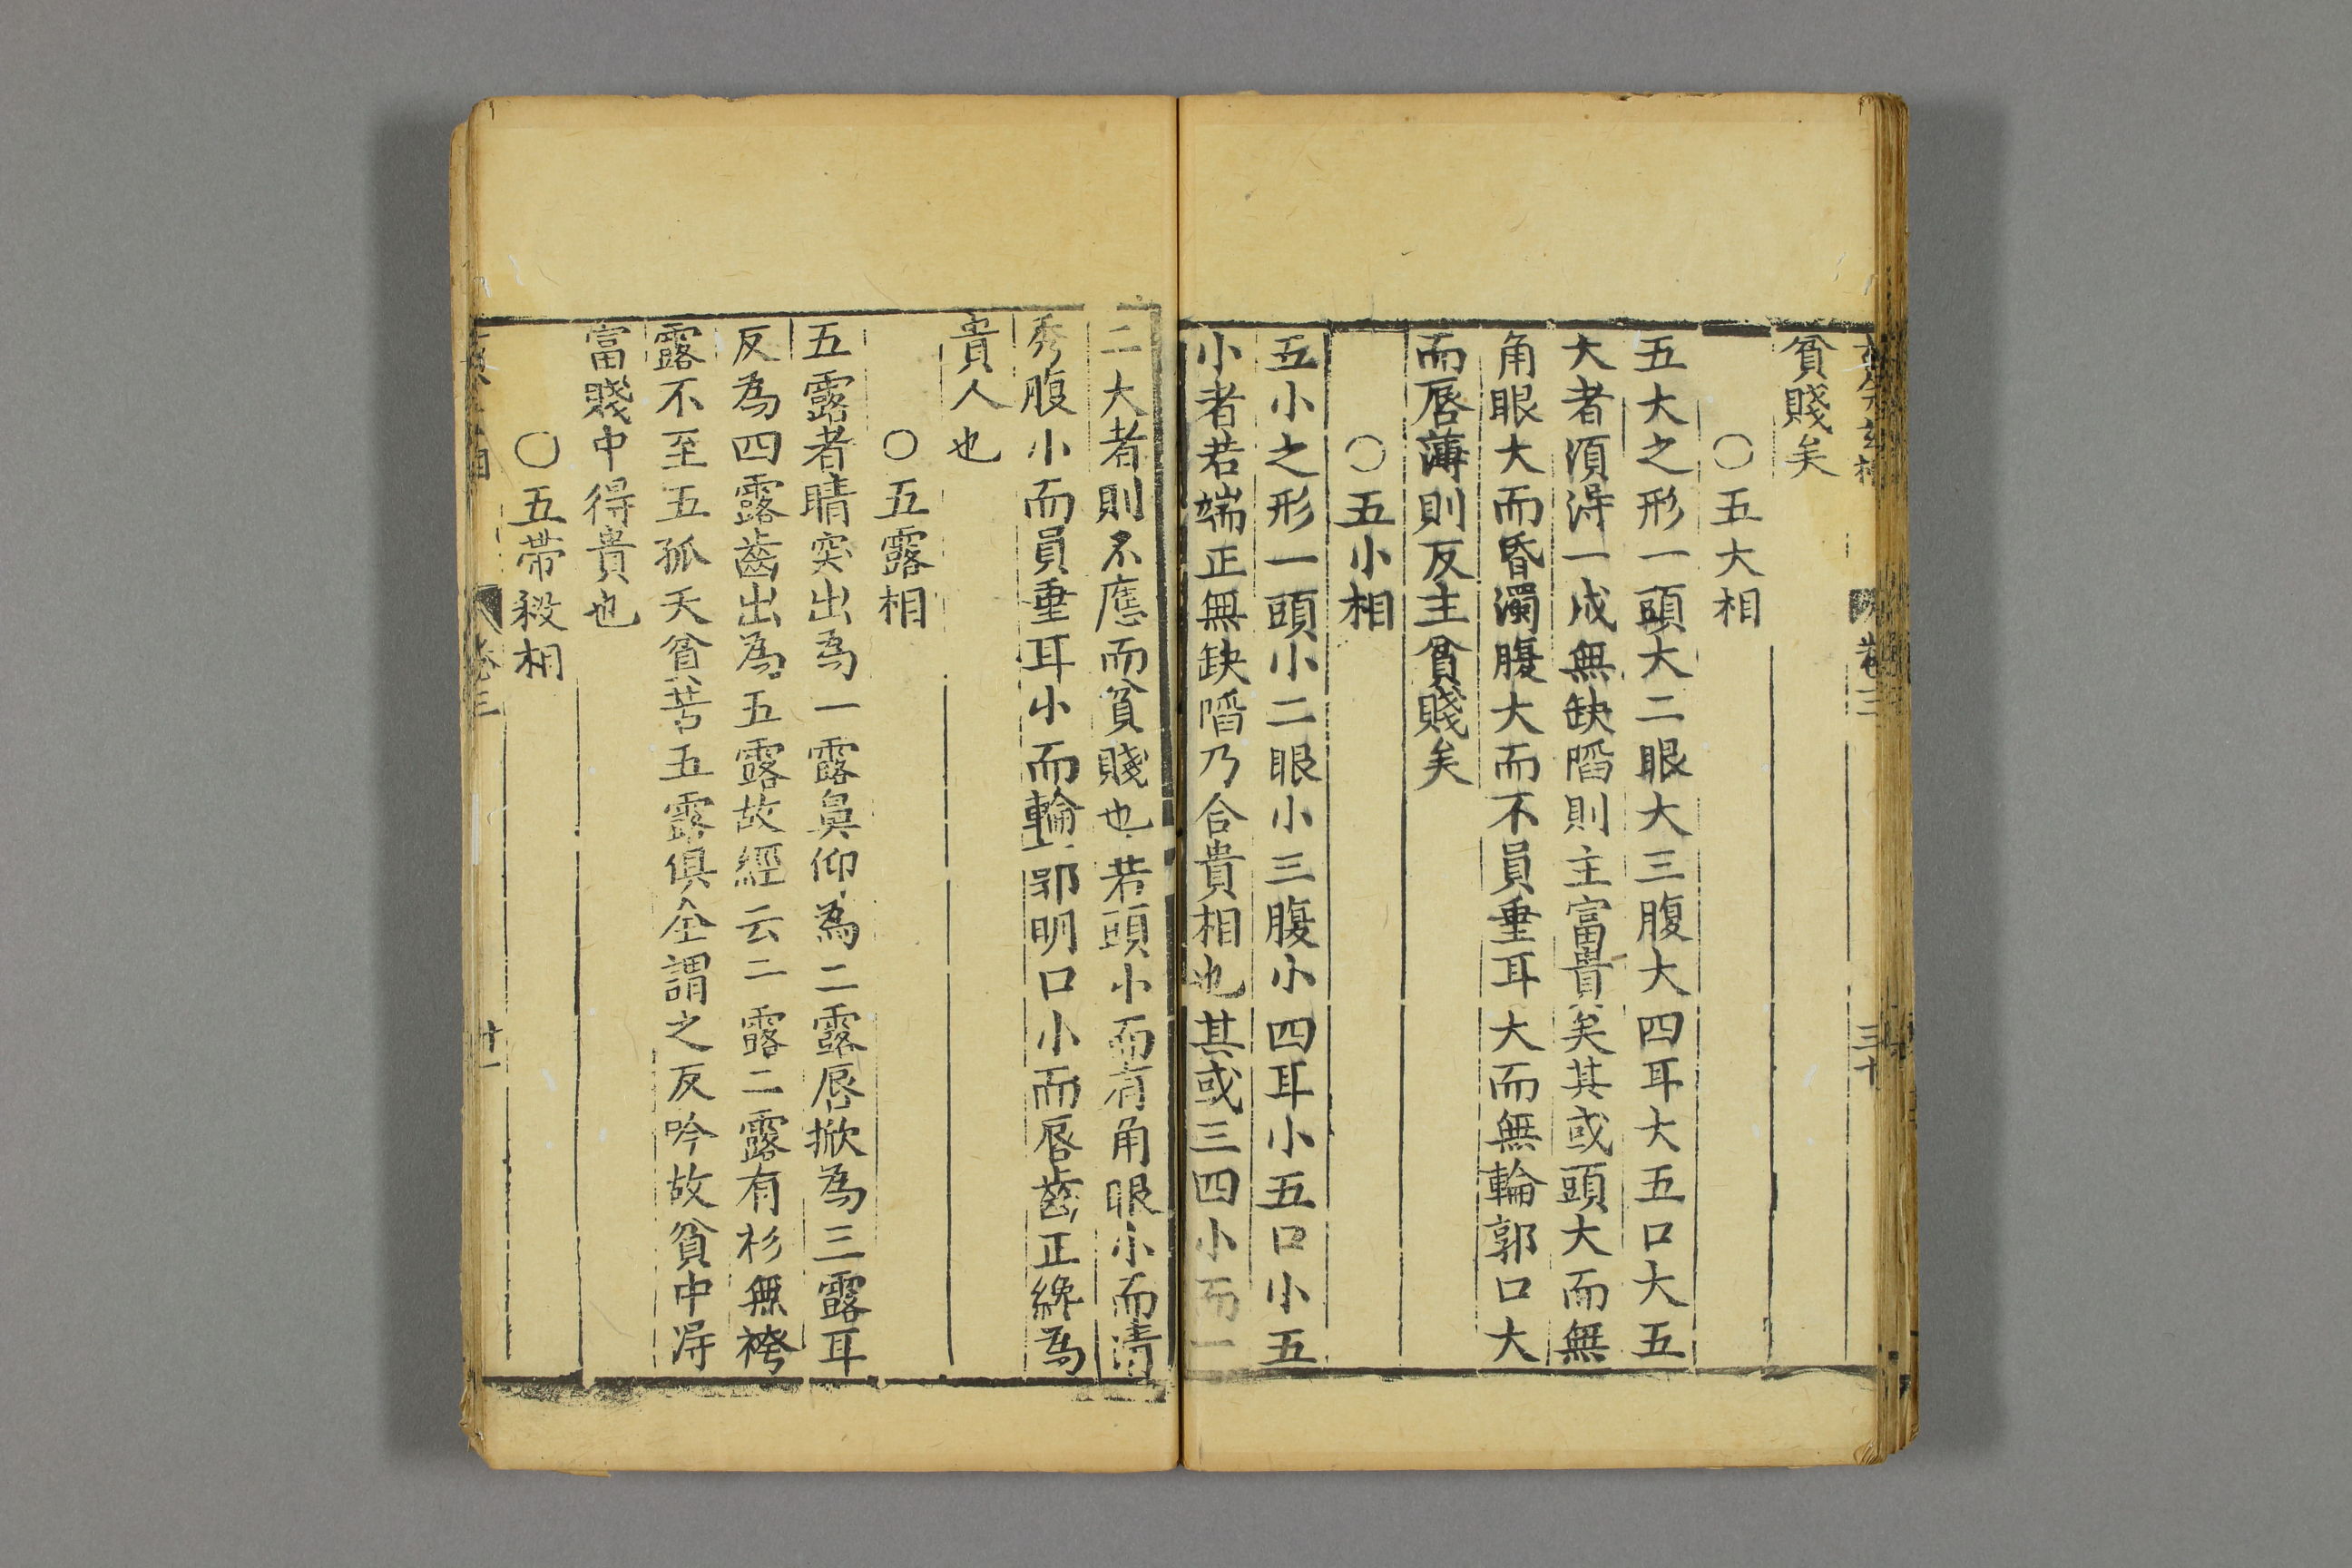 卷三
三十
貧賤矣
○五大相
五大之形一頭大二眼大三腹大四耳大五口大五
大者須淂一成無缺陷則主富貴矣其或頭大而無
角眼大而昏濁腹大而不員垂耳大而無輪郭口大
而唇薄則反主貧賤矣
○五小相
五小之形一頭小二眼小三腹小四耳小五口小五
小者若端正無缺陷乃合貴相也其或三四小而一
二大者則不應而貧賤也若頭小而有角眼小而清
秀腹小而員垂耳小而輪郭明口小而唇齒正纔為
貴人也
○五露相
五露者睛突出為一露鼻仰為二露唇掀為三露耳
反為四露齒出為五露故經云二露二露有衫無袴
露不至五孤夭貧苦五露俱全謂之反吟故貧中淂
富賤中得貴也
○五帶殺相
卷三
廿一